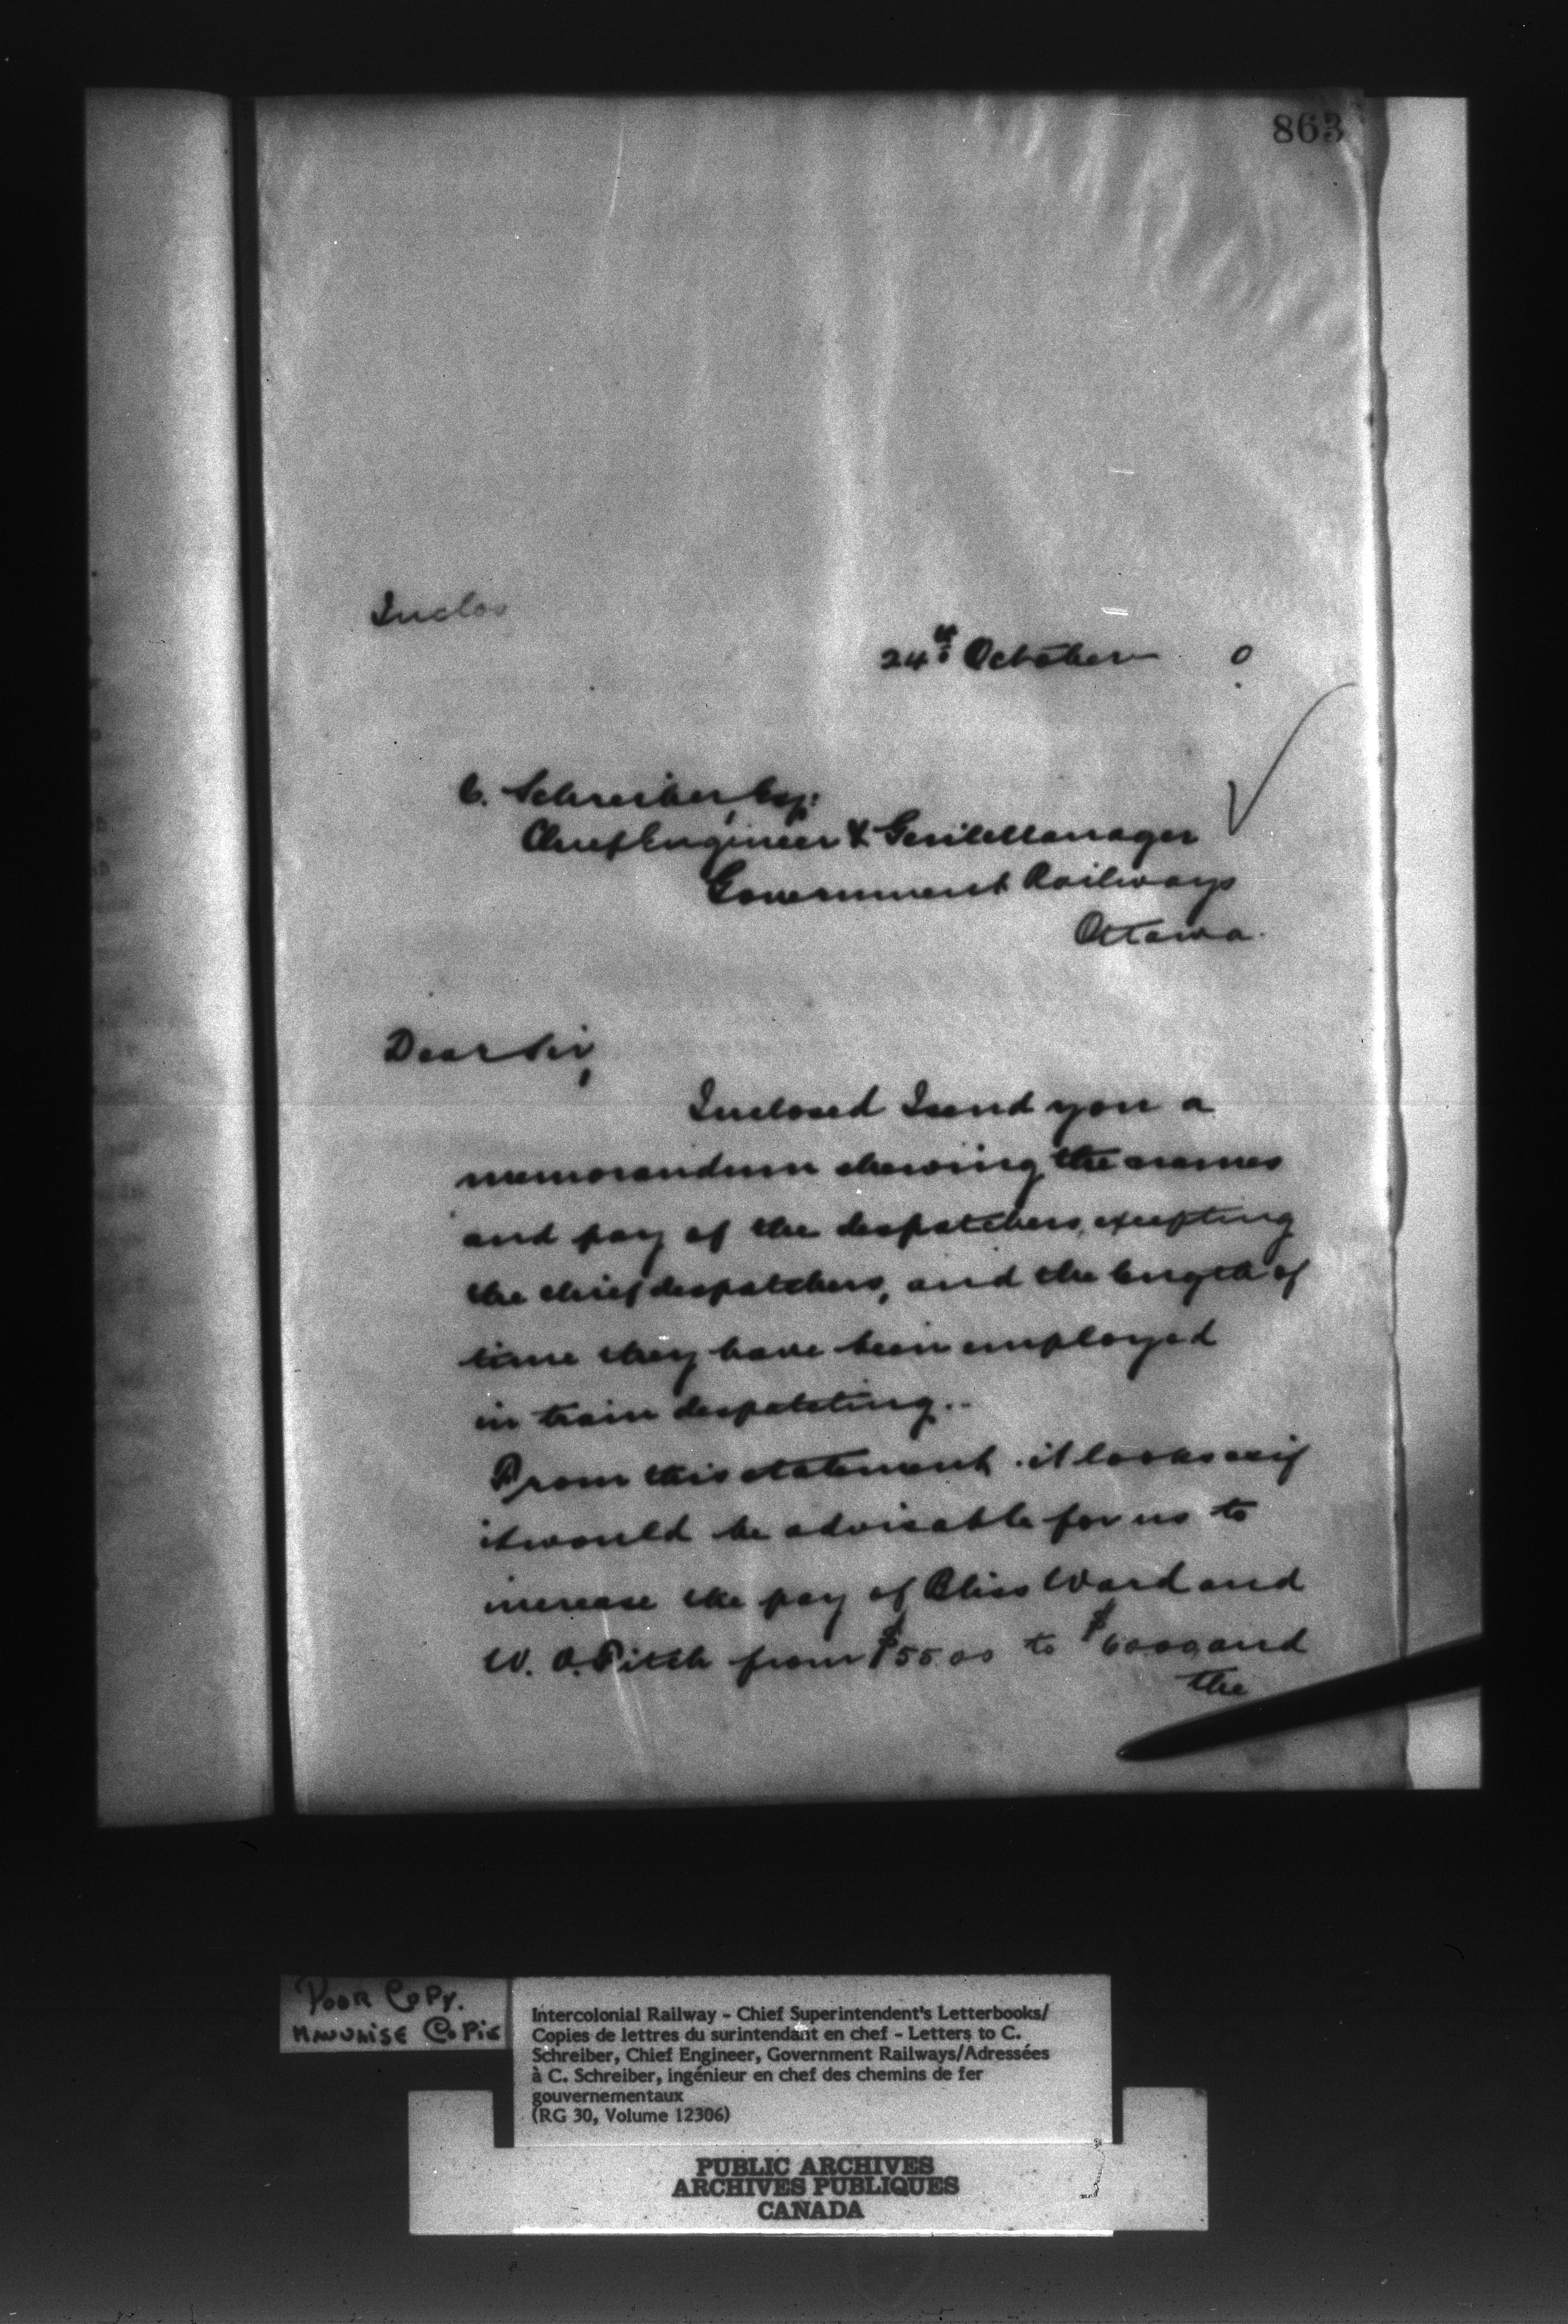 863
Inclos
24th October 0
C. Schreiber, Esq:
Chief Engineer & Genl Manager
Government Railways
Ottawa.
Dear Sir,
Inclosed I send you a
memorandum shewing the names
and pay of the despatchers, excepting
the chief despatchers, and the length of
time they have been employed
in train despatching..
From this statement it looks as if
it would be advisable for us to
increase the pay of Bliss Ward and
W. O. Fitch from $55.00 to $60.00, and
the
POOR COPY.
MAUVAISE COPIE
Intercolonial Railway - Chief Superintendent's Letterbooks/
Copies de lettres du surintendant en chef - Letters to C.
Schreiber, Chief Engineer, Government Railways/Adressées
à C. Schreiber, ingénieur en chef des chemins de fer
gouvernementaux
(RG 30, Volume 12306)
PUBLIC ARCHIVES
ARCHIVES PUBLIQUES
CANADA